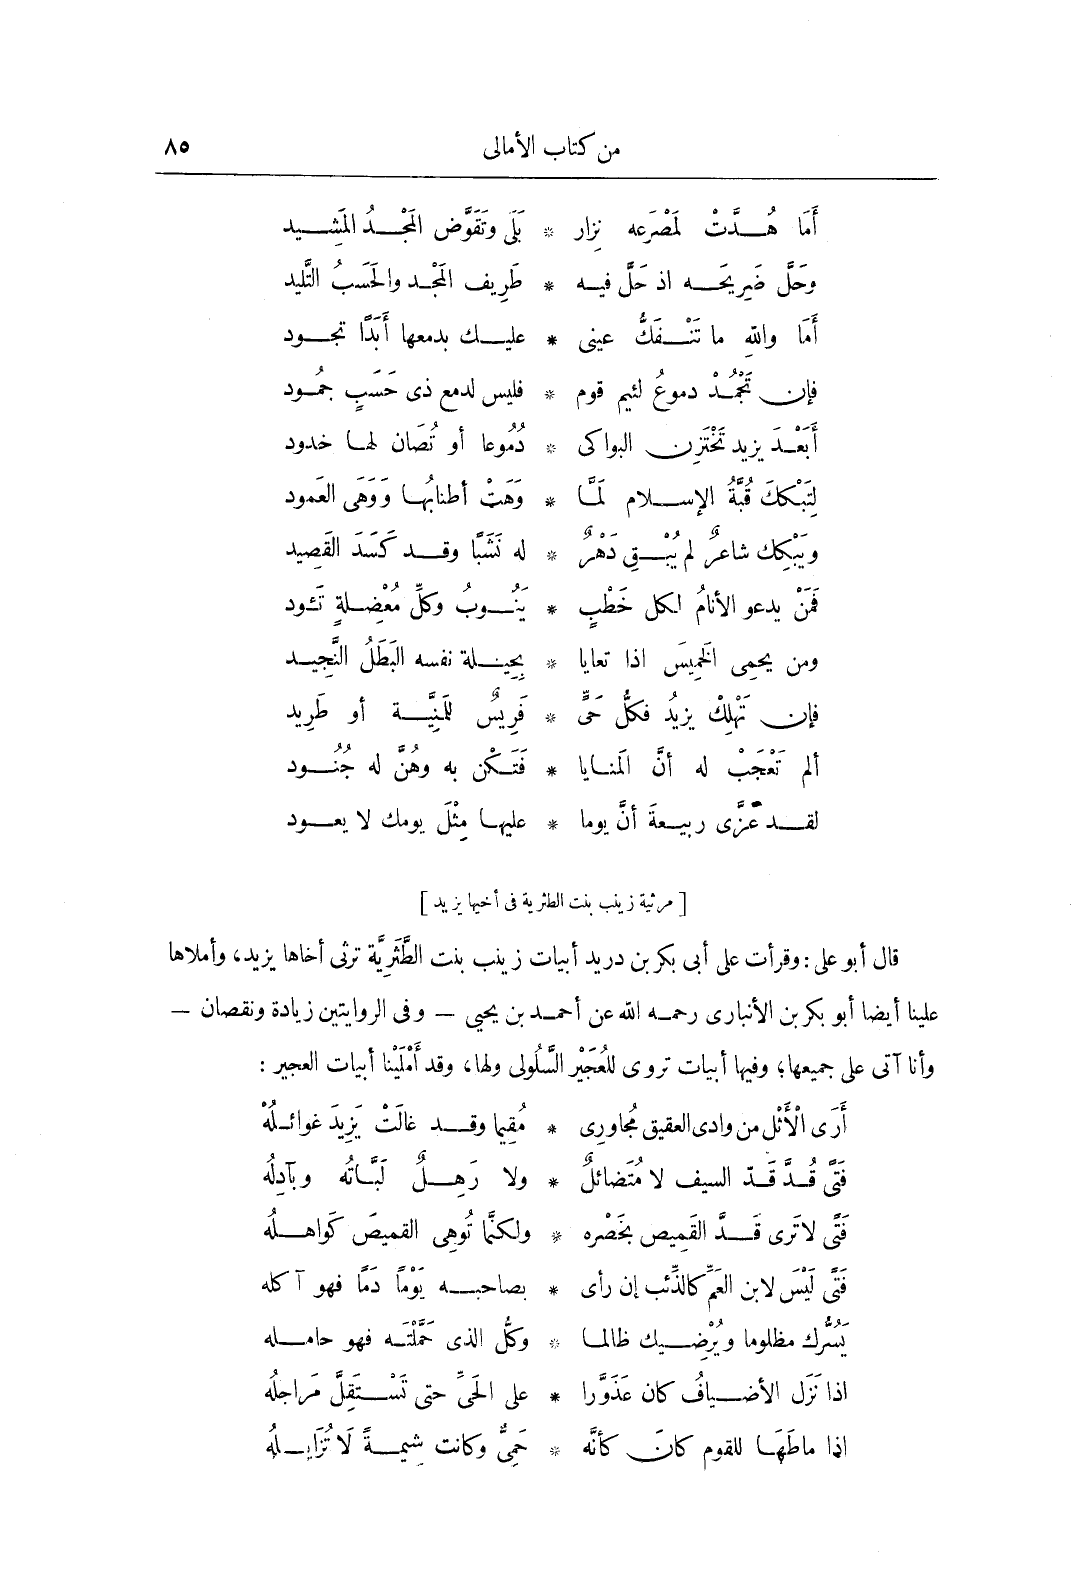 من كتاب الأمالى ٨٥
أَمَا هُدَّتْ لمَصْرَعه نِزار * بَلَى وتَقَوَّضَ المَجْدُ المَشِيد
وحَلَّ ضَرِيحَه اذ حَلَّ فيه * طَرِيف المَجْد والحَسَبُ التَّلِيد
أَمَا واللهِ ما تَنْفَكُّ عينى * عليك بدمعها أَبَدًا تجود
فإن تَجْمُدْ دموعُ لئيم قوم * فليس لدمع ذى حَسَبٍ جُمُود
أَبَعْدَ يزيد تَخْتَزِن البواكى * دُمُوعا أو تُصَان لها خدود
لِتَبْكِكَ قُبَّةُ الإسلام لَمَّا * وَهَتْ أطنابُها وَوَهَى العَمود
ويَبْكِك شاعرٌ لم يُبْقِ دَهْرٌ * له نَشَبًا وقد كَسَدَ القَصِيد
فَمَنْ يدعو الأنامُ لكل خَطْبٍ * يَنُوبُ وكلِّ مُعْضِلةٍ تَئود
ومن يحمِى الخَمِيسَ اذا تعايا * بِحِيلة نفسه البَطَلُ النَّجِيد
فإن تَهْلِكْ يزيدُ فكلُّ حَىٍّ * فَرِيسٌ للمَنِيَّة أو طَرِيد
ألم تَعْجَبْ له أنَّ المَنايا * فَتَكْن به وهُنَّ له جُنُود
لقد عَزَّى ربيعةَ أنَّ يوما * عليها مِثْلَ يومك لا يعود
[مرثية زينب بنت الطثرية فى أخيها يزيد]
قال أبو على : وقرأت على أبى بكر بن دريد أبيات زينب بنت الطَّثَرِيَّة ترثى أخاها يزيد، وأملاها
علينا أيضا أبو بكر بن الأنبارى رحمه الله عن أحمد بن يحيى — وفى الروايتين زيادة ونقصان —
وأنا آتى على جميعها؛ وفيها أبيات تروى للعُجَيْر السَّلُولى ولها، وقد أَمْلَيْنا أبيات العجير :
أَرَى الْأَثْل من وادى العقيق مُجَاوِرِى * مُقِيما وقد غالَتْ يَزِيدَ غوائلُهْ
فَتًى قُدَّ قَدّ السيف لا مُتَضائلٌ * ولا رَهِلٌ لَبَّاتُه وبآدِلُه
فَتًى لا تَرى قَدَّ القَمِيص بخَصْره * ولكنَّما تُوهِى القميصَ كَواهلُه
فَتًى لَيْسَ لابن العَمِّ كالذِّئب إن رأى * بصاحبه يَوْمًا دَمًا فهو آكله
يَسُرُّك مظلوما ويُرْضِيك ظالما * وكلُّ الذى حَمَّلْتَه فهو حامله
اذا نَزَل الأضيافُ كان عَذَوَّرا * على الحَىِّ حتى تَسْتَقِلَّ مَراجلُه
اذا ماطَهَا للقوم كانَ كأنَّه * حَمِىٌّ وكانت شِيمةً لَا تُزَايِلُهْ